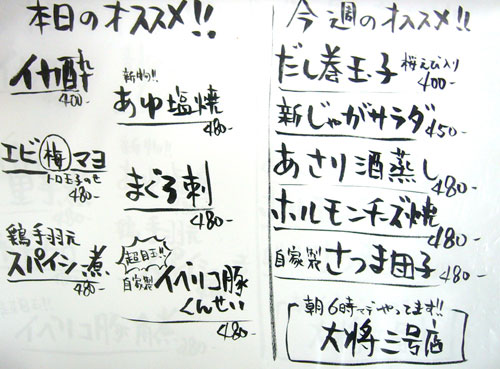 本日のオススメ!!
イカ酔
400-
エビ梅マヨ
トロ玉子のせ
480-
鶏手羽元
スパイシー煮
480-
新物!!
あゆ塩焼
480-
まぐろ刺
480-
超目玉!!
自家製
イベリコ豚
くんせい
480-
今週のオススメ!!
だし巻玉子 桜えび入り
400-
新じゃがサラダ 450-
あさり酒蒸し
480-
ホルモンチーズ焼
480-
自家製 さつま団子 480-
朝6時までやってます!!
大将三号店